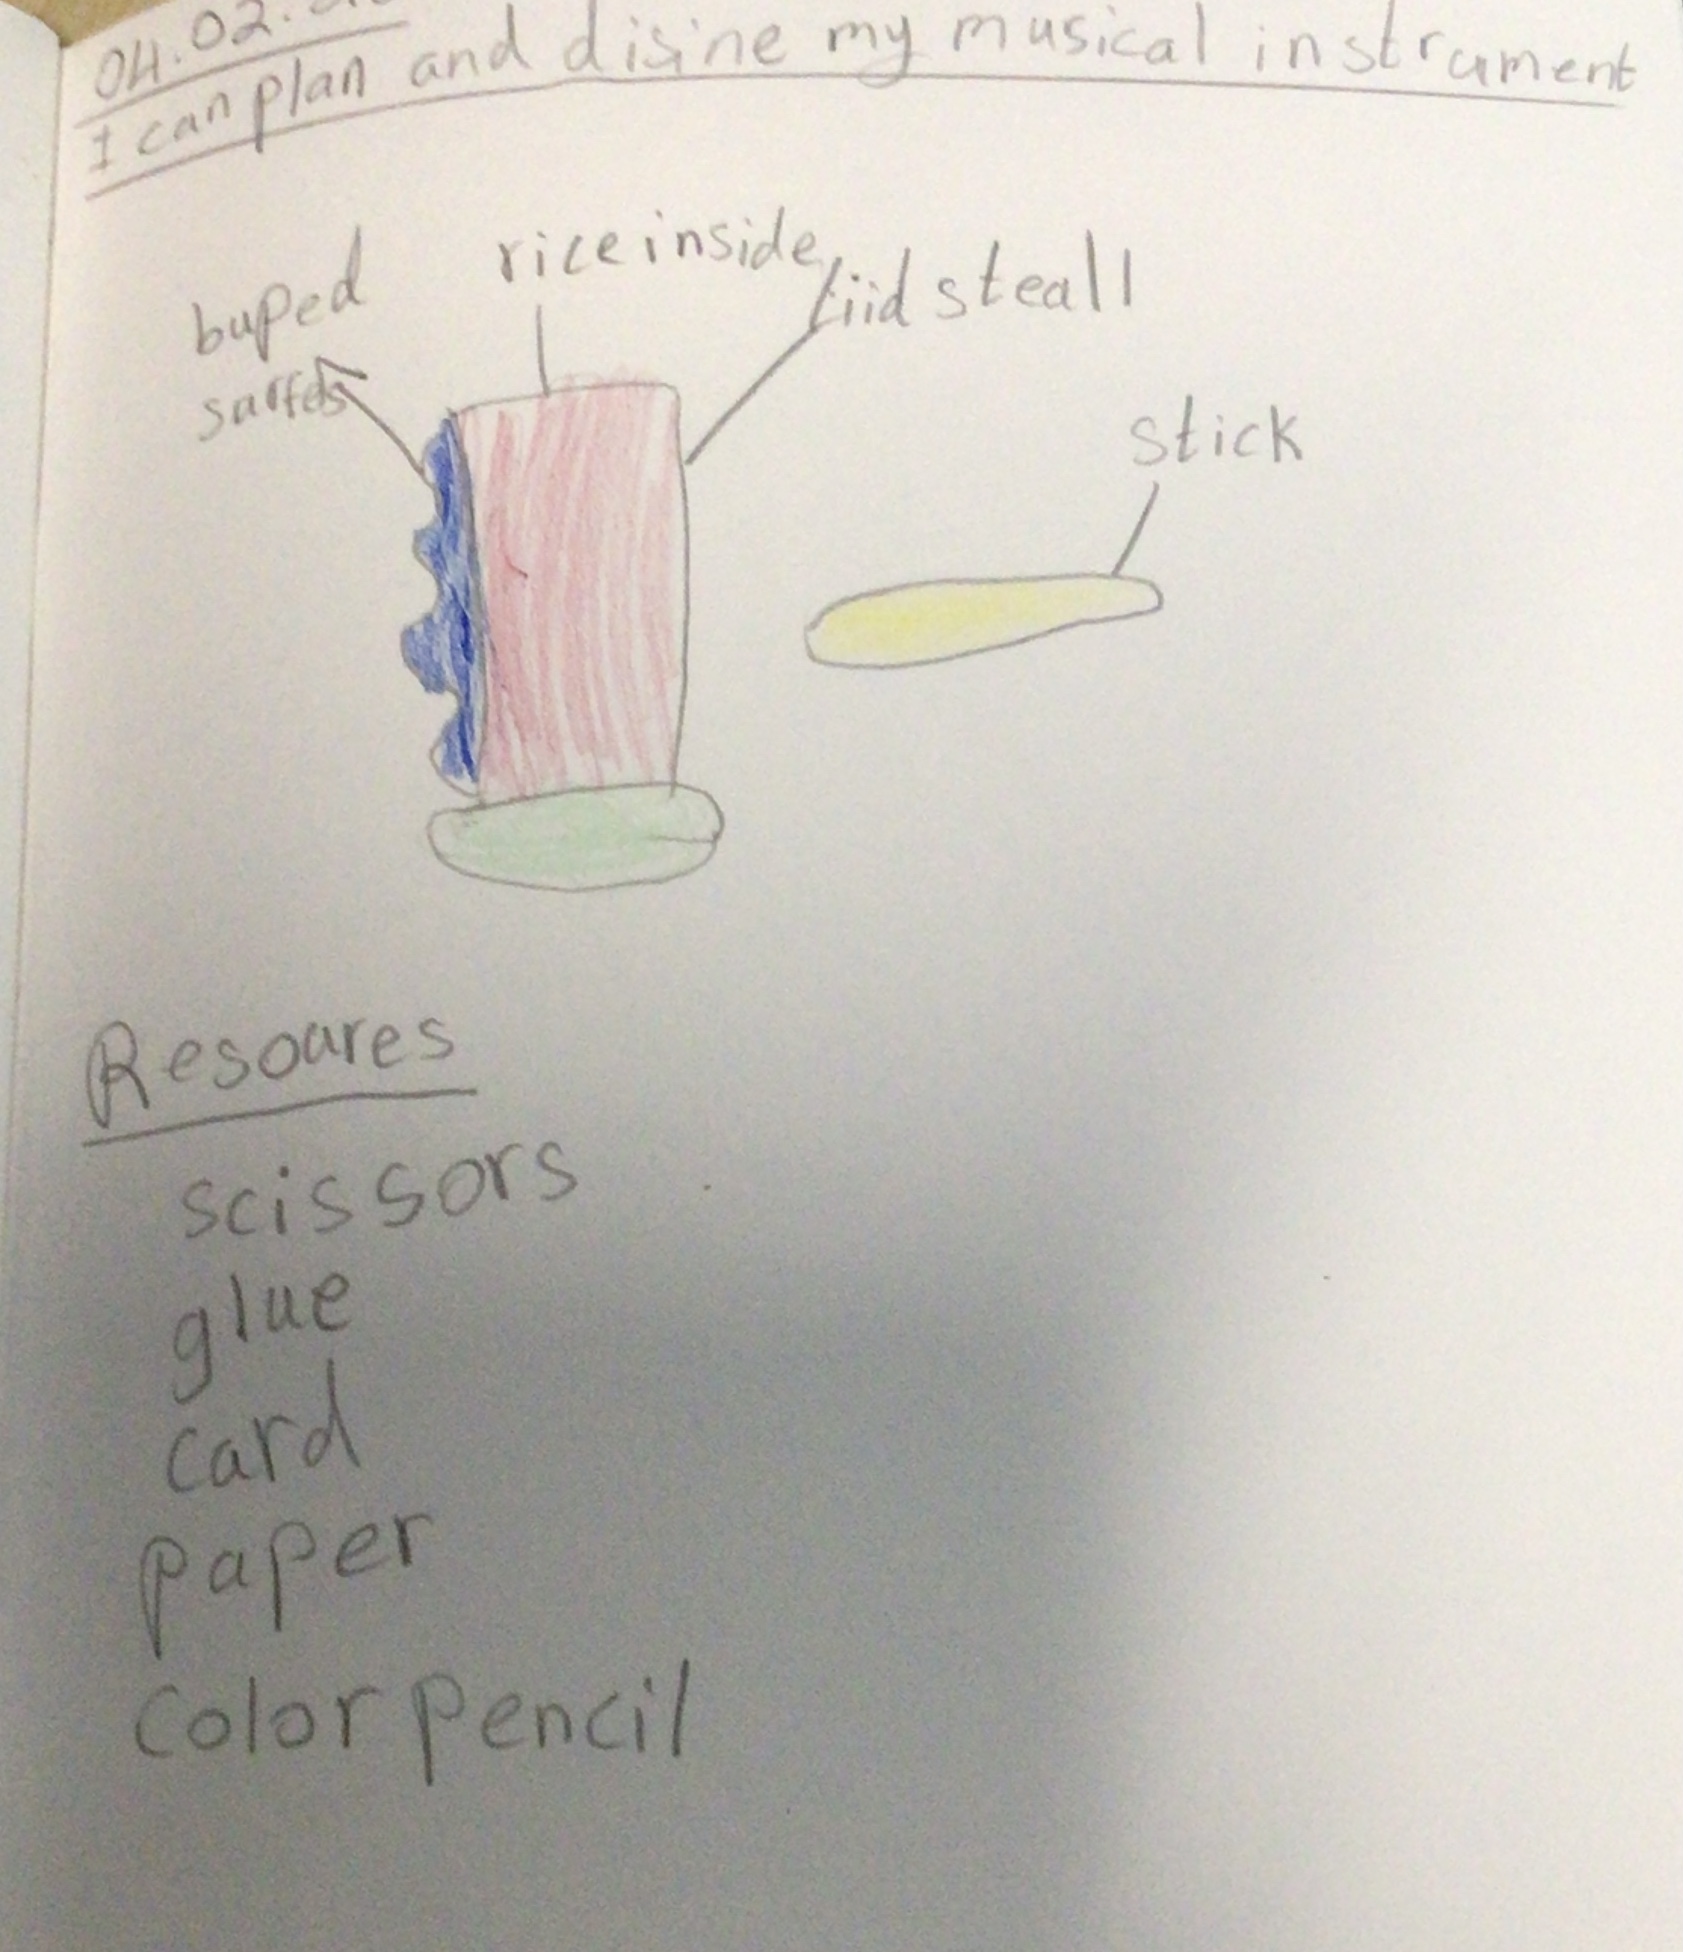 04.02.
I can plan and disine my musical instrument
rice inside
buped
liid steall
stick
Resoures
scissors
glue
card
paper
color pencil